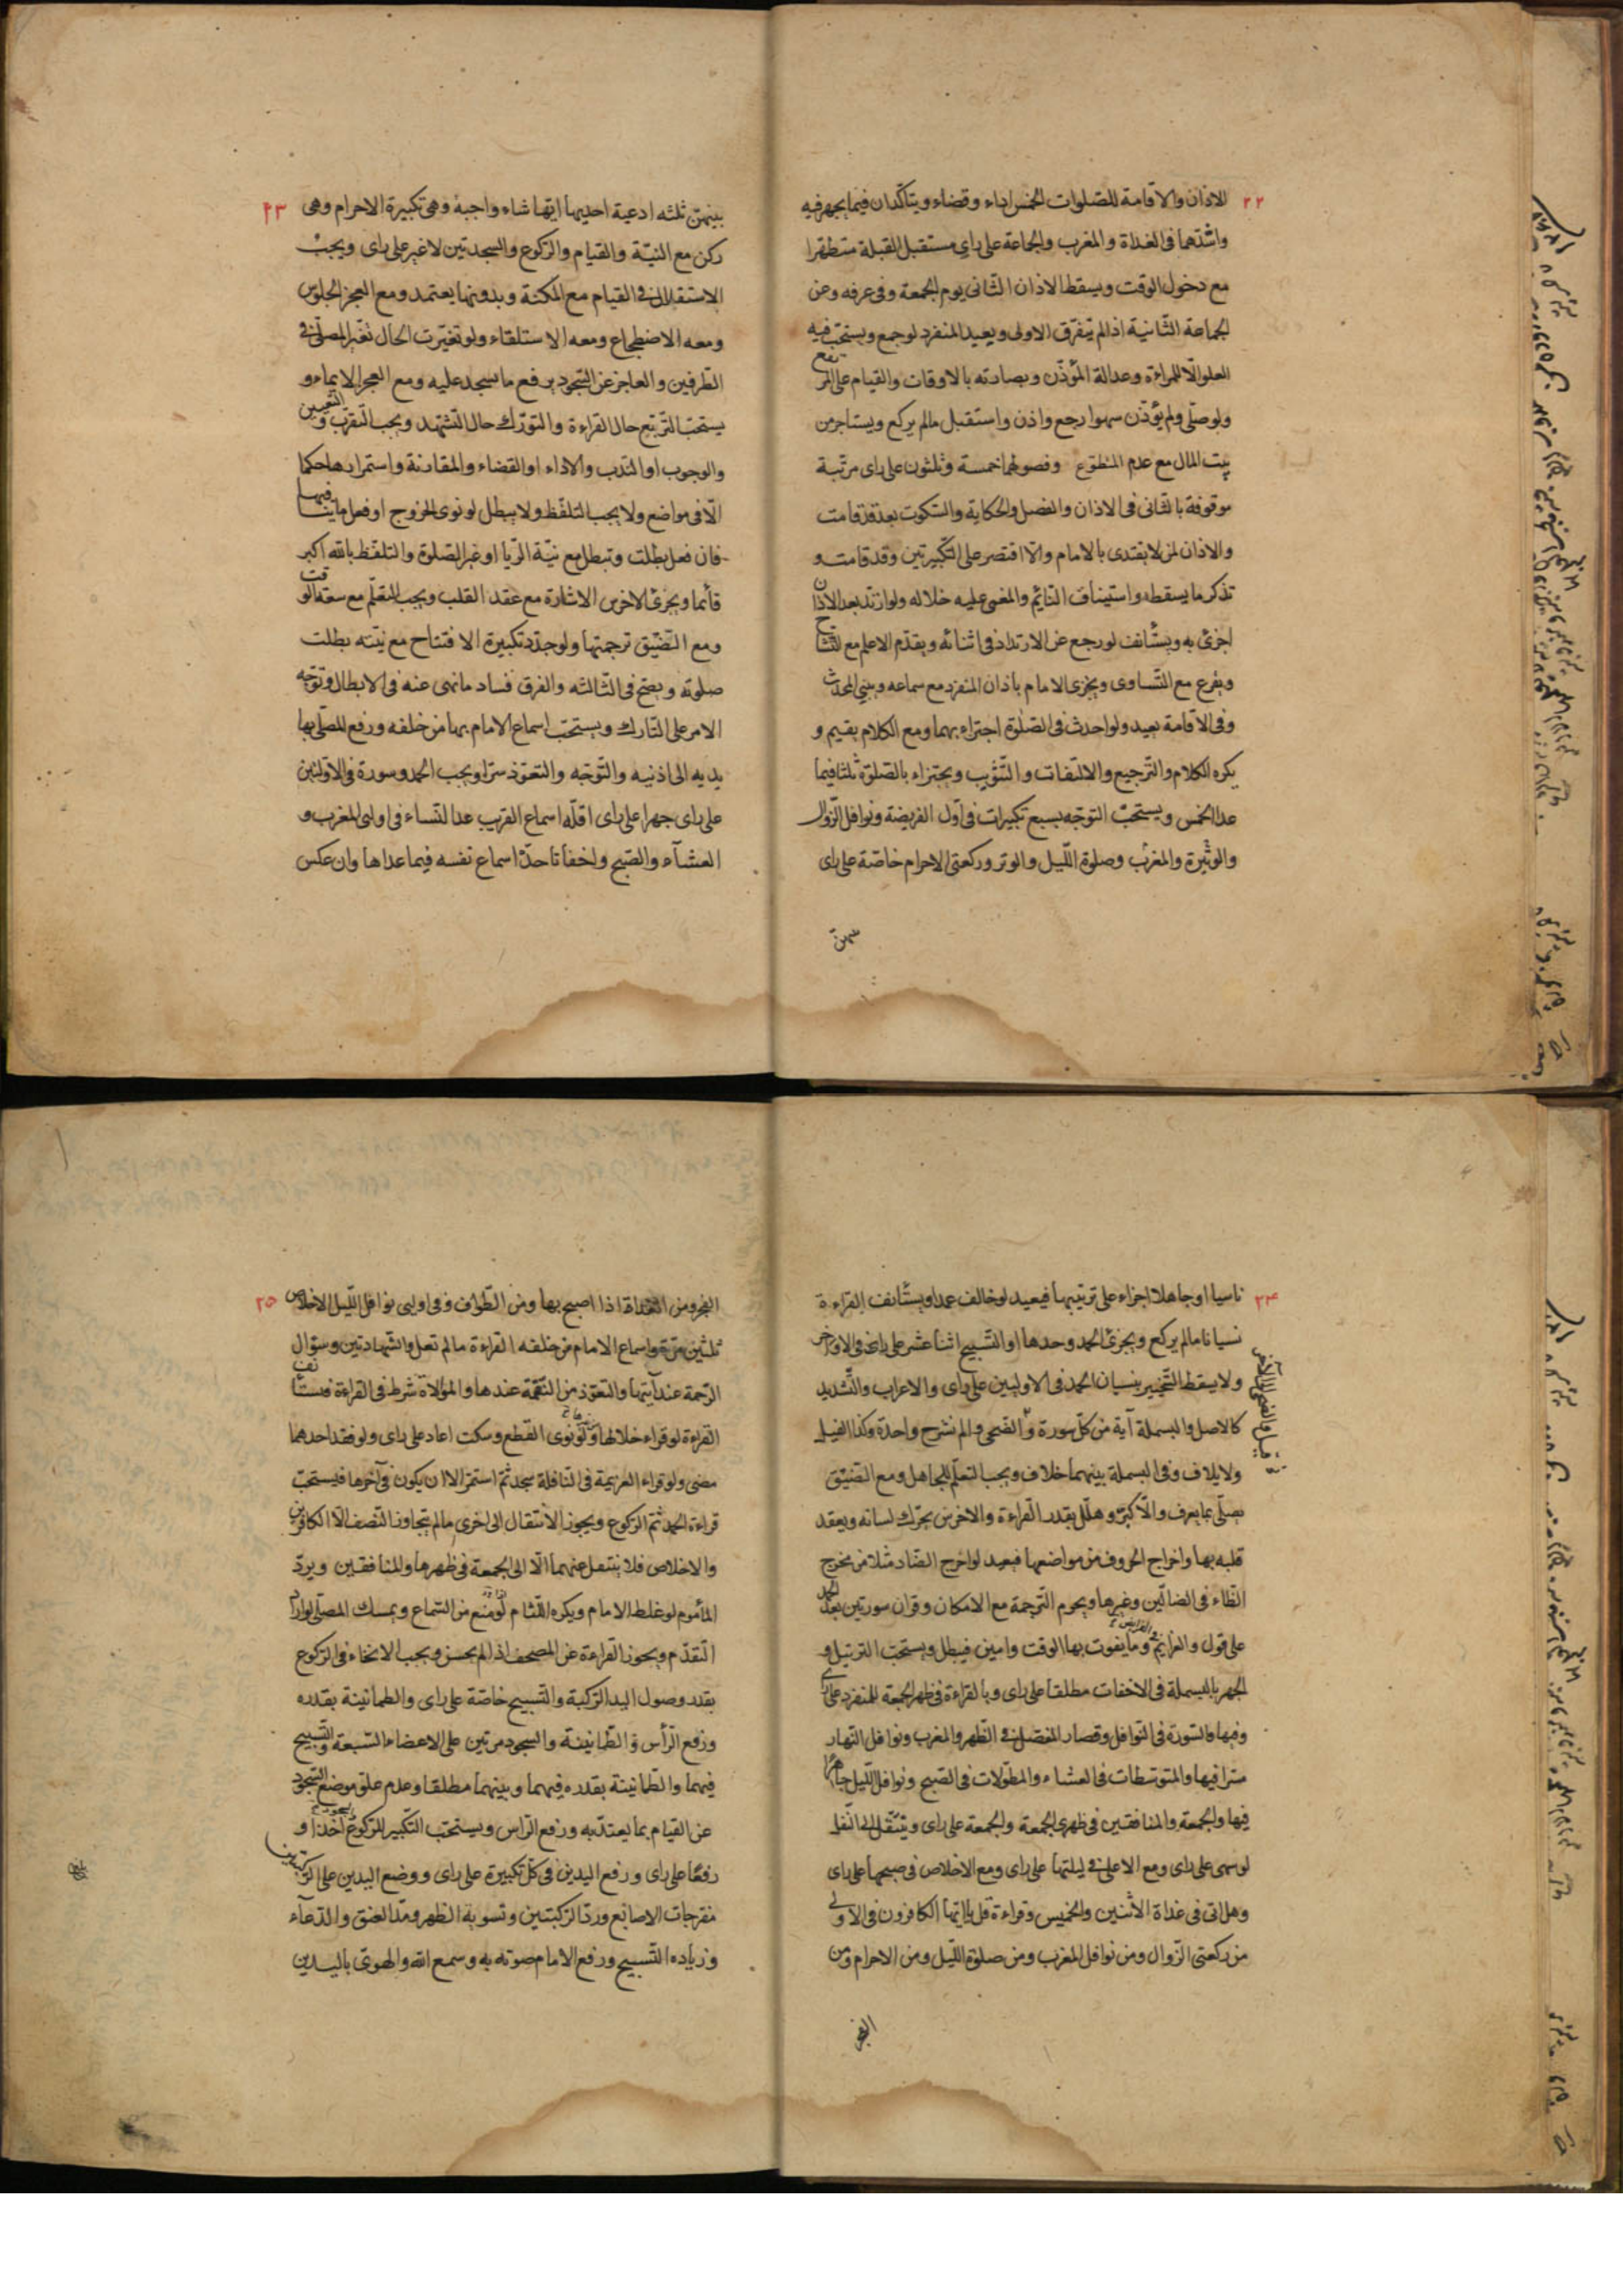 ٢٢
الاذان والاقامة للصلوات الخمس اداء وقضاء ويتأكدان فيما يجهر فيه
واشدهما فى الغداة والمغرب والجماعة على راى مستقبل القبلة متطهرا
مع دخول الوقت ويسقط الاذان الثانى يوم الجمعة وفى عرفه وعن
الجماعة الثانية اذا لم يتفرق الاولى ويعيد المنفرد لو جمع ويستحب فيه
العلو الا للمراءة وعدالة المؤذن وبصارته بالاوقات والقيام على المرتفع
ولو صلى ولم يؤذن سهوا رجع واذن واستقبل مالم يركع ويستاجر من
بيت المال مع عدم المتطوع وفصولهما خمسة وثلثون على راى مرتبة
موقوفة بالثانى فى الاذان والفصل والحكاية والسكوت بعد قد قامت
والاذان لمن لا يقتدى بالامام والا اقتصر على التكبيرتين وقد قامت و
تذكر ما يسقطه واستيناف النائم والمغمى عليه خلاله ولو ارتد بعد الاذان
اجزئ به ويستأنف لو رجع عن الارتداد فى اثنائه ويقدم الاعلم مع التشاح
ويقرع مع التساوى ويجزى الامام باذان المنفرد مع سماعه ويبنى المحدث
وفى الاقامة يعيد ولو احدث فى الصلوة اجتزاء بهما ومع الكلام يقيم و
يكره الكلام والترجيع والالتفات والتثويب ويجتزاء بالصلوة ثلثا فيما
عدا الخمس ويستحب التوجه بسبع تكبيرات فى اول الفريضة ونوافل الزوال
والوتيرة والمغرب وصلوة الليل والوتر وركعتى الاحرام خاصة على راى
بينهن
٢٣
بينهن ثلثه ادعية احديها ايتها شاء واجبة وهى تكبيرة الاحرام وهى
ركن مع النية والقيام والركوع والسجدتين لا غير على راى ويجب
الاستقلال فى القيام مع المكنة وبدونها يعتمد ومع العجز الجلوس
ومعه الاضطجاع ومعه الاستلقاء ولو تغيرت الحال تغير المصلى فى
الطرفين والعاجز عن السجود يرفع ما يسجد عليه ومع العجز الايماء و
يستحب التربيع حال القراءة والتورك حال التشهد ويجب التقرب والتعيين
والوجوب او الندب والاداء او القضاء والمقارنة واستمرارها حكما
الا فى مواضع ولا يجب التلفظ ولا يبطل لو نوى الخروج او فعل ما ينافيها
فان فعل بطلت وتبطل مع نية الريا او غير الصلوة والتلفظ بالله اكبر
قائما ويجزئ الاخرس الاشارة مع عقد القلب ويجب التعلم مع سعة الوقت
ومع الضيق ترجمتها ولو جدد تكبيرة الافتتاح مع نيته بطلت
صلوته ويصح فى الثالثه والفرق فساد ما نهى عنه فى الابطال وتوجه
الامر على التارك ويستحب اسماع الامام بها من خلفه ورفع المصلى بها
يديه الى اذنيه والتوجه والتعوذ سرا ويجب الحمد وسورة فى الاوليين
على راى جهرا على راى اقله اسماع القريب عدا النساء فى اولى المغرب و
العشاء والصبح واخفاتا حده اسماع نفسه فيما عداها وان عكس
٢٤
ناسيا او جاهلا اجزاء على ترتيبها فيعيد لو خالف عمدا ويستأنف القراءة
نسيانا مالم يركع ويجزئ الحمد وحدها او التسبيح اثنا عشر على راى فى الاواخر
ولا يسقط التخيير بنسيان الحمد فى الاوليين على راى والاعراب والتشديد
كالاصل والبسملة آية من كل سورة والضحى والم نشرح واحدة وكذا الفيل
ولايلاف وفى البسملة بينهما خلاف ويجب التعلم للجاهل ومع الضيق
يصلى بما يعرف والا كبر وهلل بقدر القراءة والاخرس يحرك لسانه ويعقد
قلبه بها واخراج الحروف من مواضعها فيعيد لو اخرج الضاد مثلا من مخرج
الظاء فى الضالين وغيرها ويحرم الترجمة مع الامكان وقران سورتين بعد الحمد
على قول والعزايم فى الفرايض وما يفوت بها الوقت وامين فيبطل ويستحب الترتيل و
الجهر بالبسملة فى الاخفات مطلقا على راى وبالقراءة فى ظهر الجمعة للمنفرد على راى
وفيها والسورة فى النوافل وقصار المفصل فى الظهر والمغرب ونوافل النهار
سرا فيها والمتوسطات فى العشاء والمطولات فى الصبح ونوافل الليل جاهرا
فيها والجمعة والمنافقين فى ظهرى الجمعة والجمعة على راى ويتنقل الى النفل
لو سمى على راى ومع الاعلى فى ليلتها على راى ومع الاخلاص فى صبحها على راى
وهل اتى فى غداة الاثنين والخميس وقراءة قل يا ايها الكافرون فى الاولى
من ركعتى الزوال ومن نوافل المغرب ومن صلوة الليل ومن الاحرام ومن
الفجر
٢٥
الفجر ومن الغداة اذا اصبح بها ومن الطواف وفى اوليى نوافل الليل الاخلاص
ثلثين مرة واسماع الامام من خلفه القراءة مالم تعل والشهادتين وسؤال
الرحمة عند آيتها والتعوذ من النقمة عندها والموالاة شرط فى القراءة فيستأنف
القراءة لو قراء خلالها ولو نوى القطع وسكت اعاد على راى ولو فقد احدهما
مضى ولو قراء العزيمة فى النافلة سجد ثم استمر الا ان يكون فى آخرها فيستحب
قراءة الحمد ثم الركوع ويجوز الانتقال الى اخرى مالم يتجاوز النصف الا الكافرين
والاخلاص فلا ينتقل عنهما الا الى الجمعة فى ظهرها والمنافقين ويرد
المأموم لو غلط الامام ويكره اللثام لو منع من السماع ويمسك المصلى لو اراد
التقدم ويجوز القراءة عن المصحف اذا لم يحسن ويجب الانحناء فى الركوع
بقدر وصول اليد الركبة والتسبيح خاصة على راى والطمانينة بقدره
ورفع الرأس والطمانينة والسجود مرتين على الاعضاء السبعة والتسبيح
فيهما والطمانينة بقدره فيهما وبينهما مطلقا وعدم علو موضع السجود
عن القيام بما يعتد به ورفع الراس ويستحب التكبير للركوع اخذا و
رفعا على راى ورفع اليدين فى كل تكبيرة على راى ووضع اليدين على الركبتين
مفرجات الاصابع ورد الركبتين وتسوية الظهر ومد العنق والدعاء
وزيادة التسبيح ورفع الامام صوته به وسمع الله والهوى باليدين